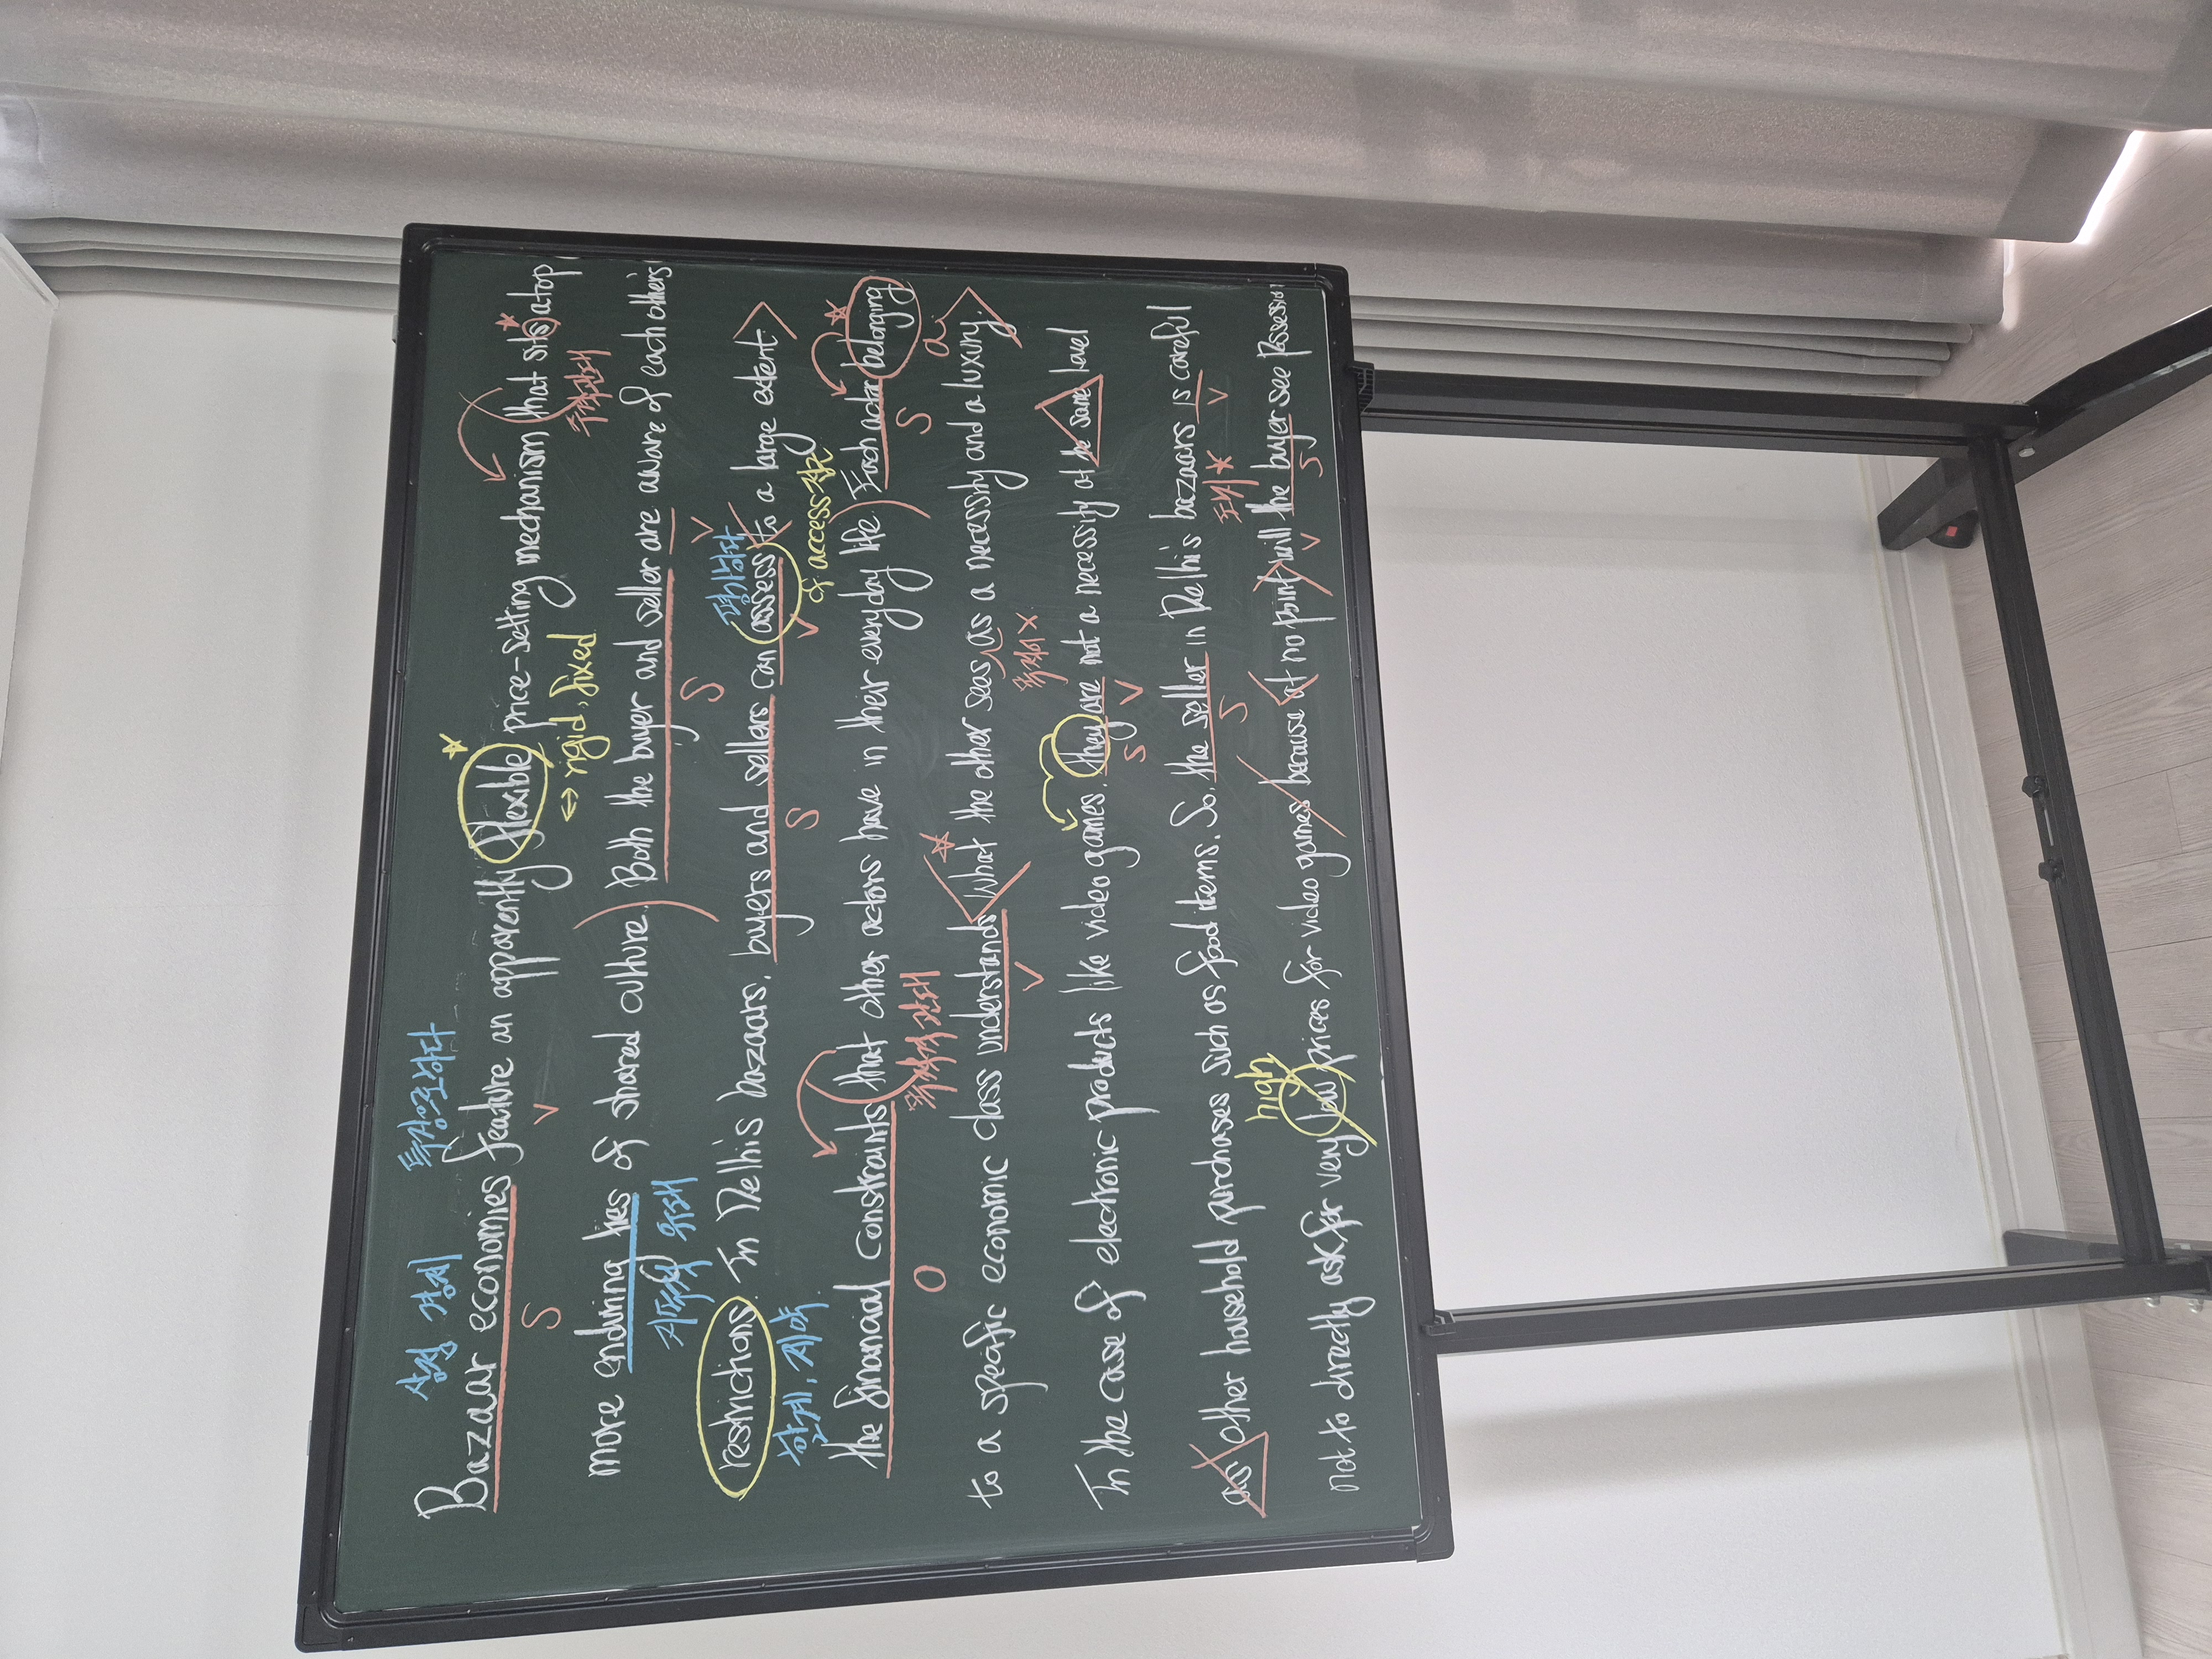 상점 경제 특징으로하다
Bazaar economies feature an apparently flexible price-setting mechanism that sits atop
S V ↔ rigid, fixed 주격관대
more enduring ties of shared culture. Both the buyer and seller are aware of each other's
지속적 유대 S V
restrictions. In Delhi's bazaars, buyers and sellers can assess to a large extent
한계, 제약 S V 평가하다 cf access 접근
the financial constraints that other actors have in their everyday life. Each actor belonging
O 목적격 관대 S a
to a specific economic class understands what the other sees as a necessity and a luxury.
V 목적어 X
In the case of electronic products like video games, they are not a necessity at the same level
S V
as other household purchases such as food items. So, the seller in Delhi's bazaars is careful
S V
high 도치
not to directly ask for very low prices for video games because at no point will the buyer see possession
V S